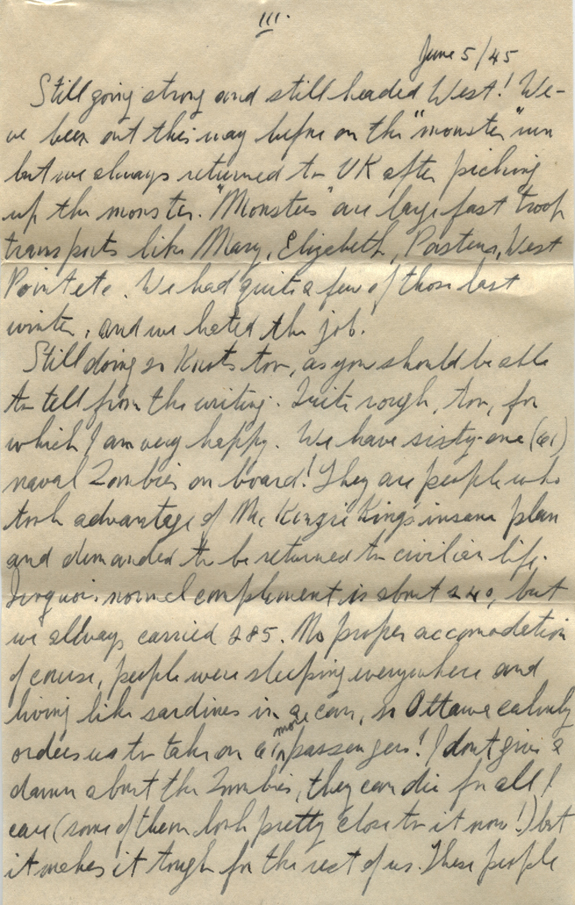 III.
June 5/45
Still going strong and still headed West! We-
ve been out this way before on the "monster" run
but we always returned to UK after picking
up the monster. "Monsters" are large fast troop
transports like Mary, Elizabeth, Pasteur, West
Point etc. We had quite a few of those last
winter, and we hated the job.
Still doing 21 Knots too, as you should be able
to tell from the writing. Quite rough, too, for
which I am very happy. We have sixty-one (61)
naval Zombies on board! They are people who
took advantage of McKenzie King's insane plan
and demanded to be returned to civilian life.
Iroquois normal complement is about 240, but
we allways carried 285. No proper accomodation
of course, people were sleeping everywhere and
living like sardines in a can, so Ottawa calmly
orders us to take on 61 more passengers! I don't give a
damn about the Zombies, they can die for all I
care (some of them look pretty close to it now!) but
it makes it tough for the rest of us. These people